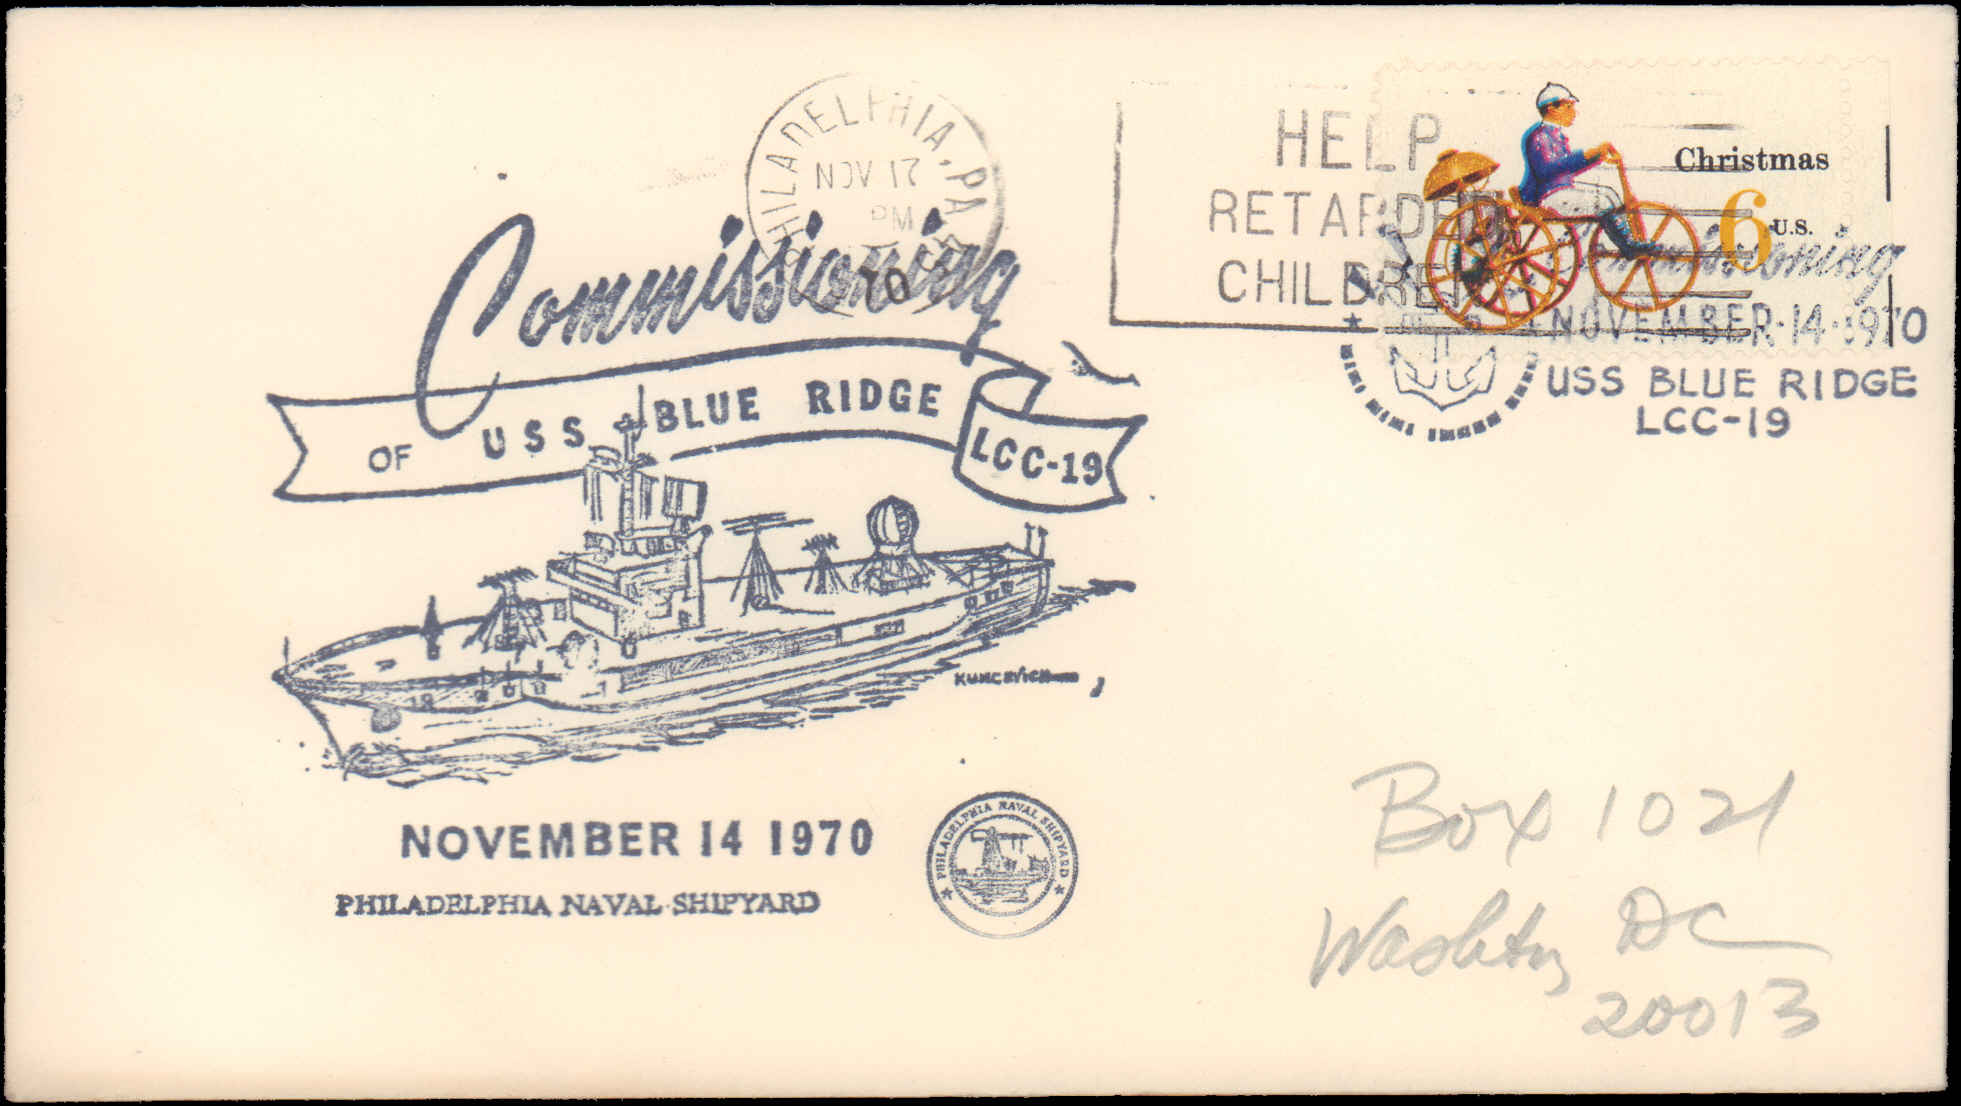 PHILADELPHIA, PA
NOV 17
PM
1970
HELP
RETARDED
CHILDREN
Christmas
6 U.S.
Commissioning
NOVEMBER·14·1970
USS BLUE RIDGE
LCC-19
Commissioning
OF USS BLUE RIDGE
LCC-19
KUNCEVICH
NOVEMBER 14 1970
PHILADELPHIA NAVAL SHIPYARD
PHILADELPHIA NAVAL SHIPYARD
Box 1021
Washtn, DC
20013